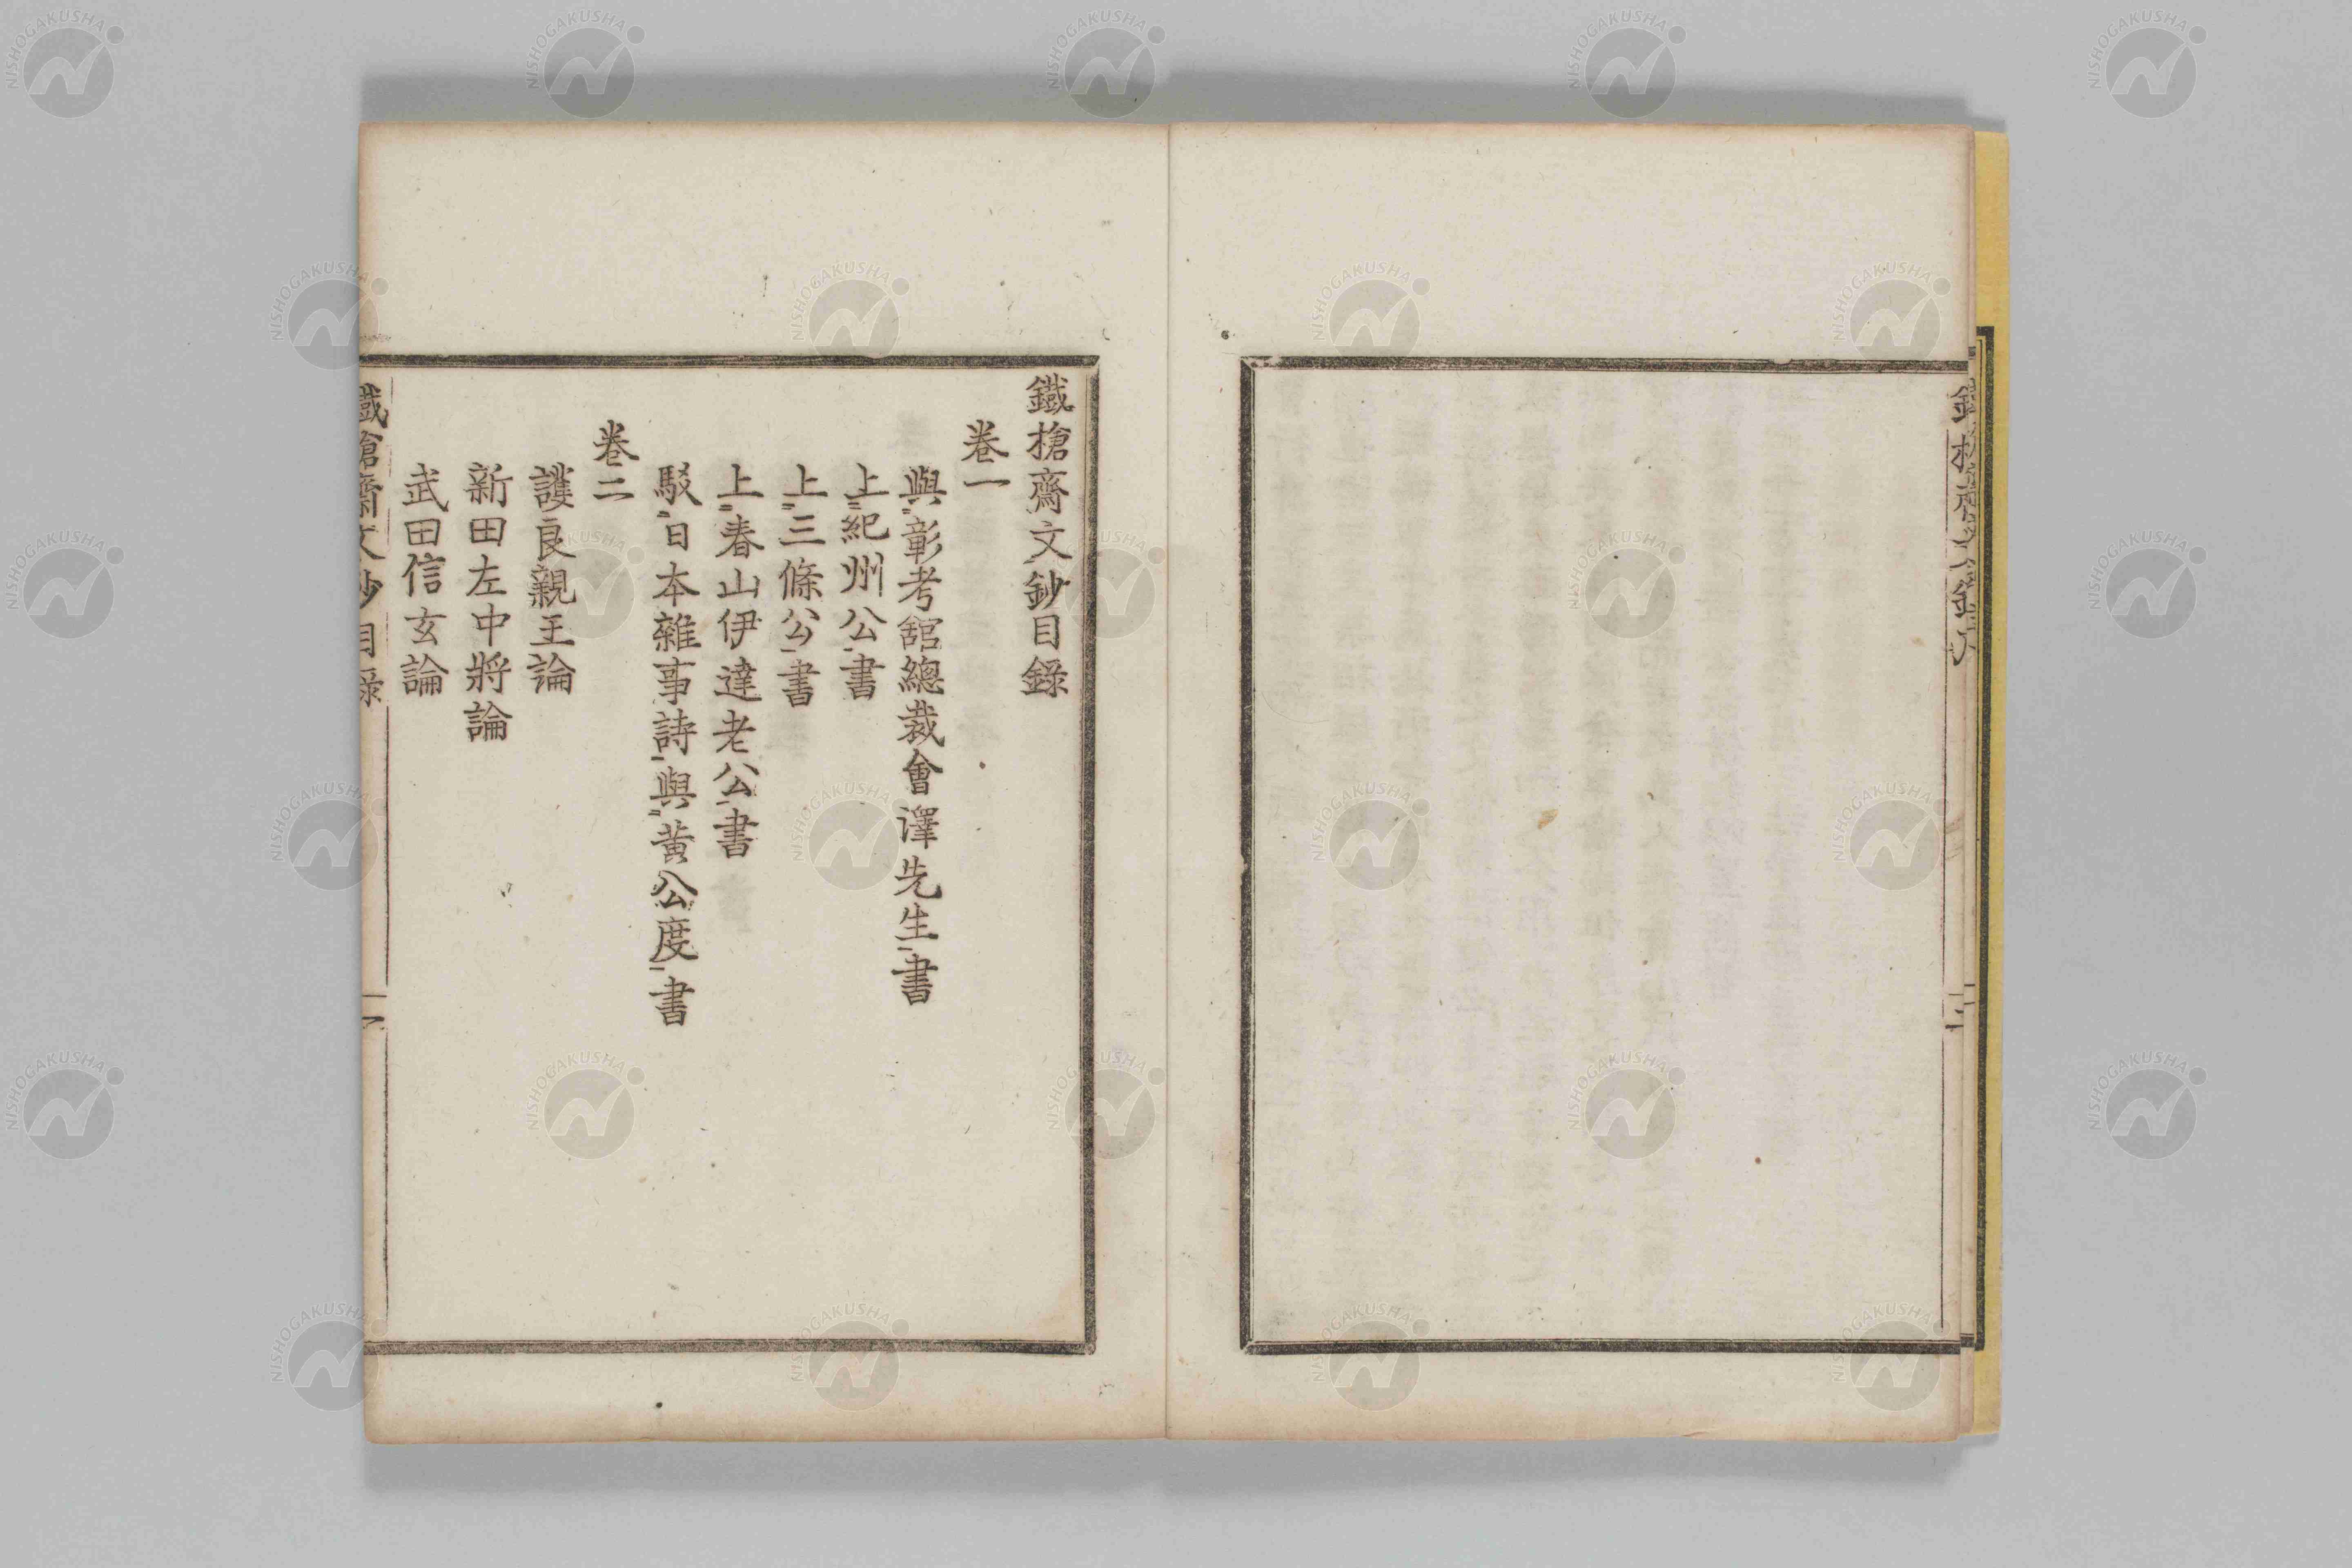 鐵槍齋文鈔目錄
卷一
與彰考舘總裁會澤先生書
上紀州公書
上三條公書
上春山伊達老公書
駁日本雜事詩與黃公度書
卷二
護良親王論
新田左中將論
武田信玄論
鐵槍齋文鈔 目錄
NISHOGAKUSHA